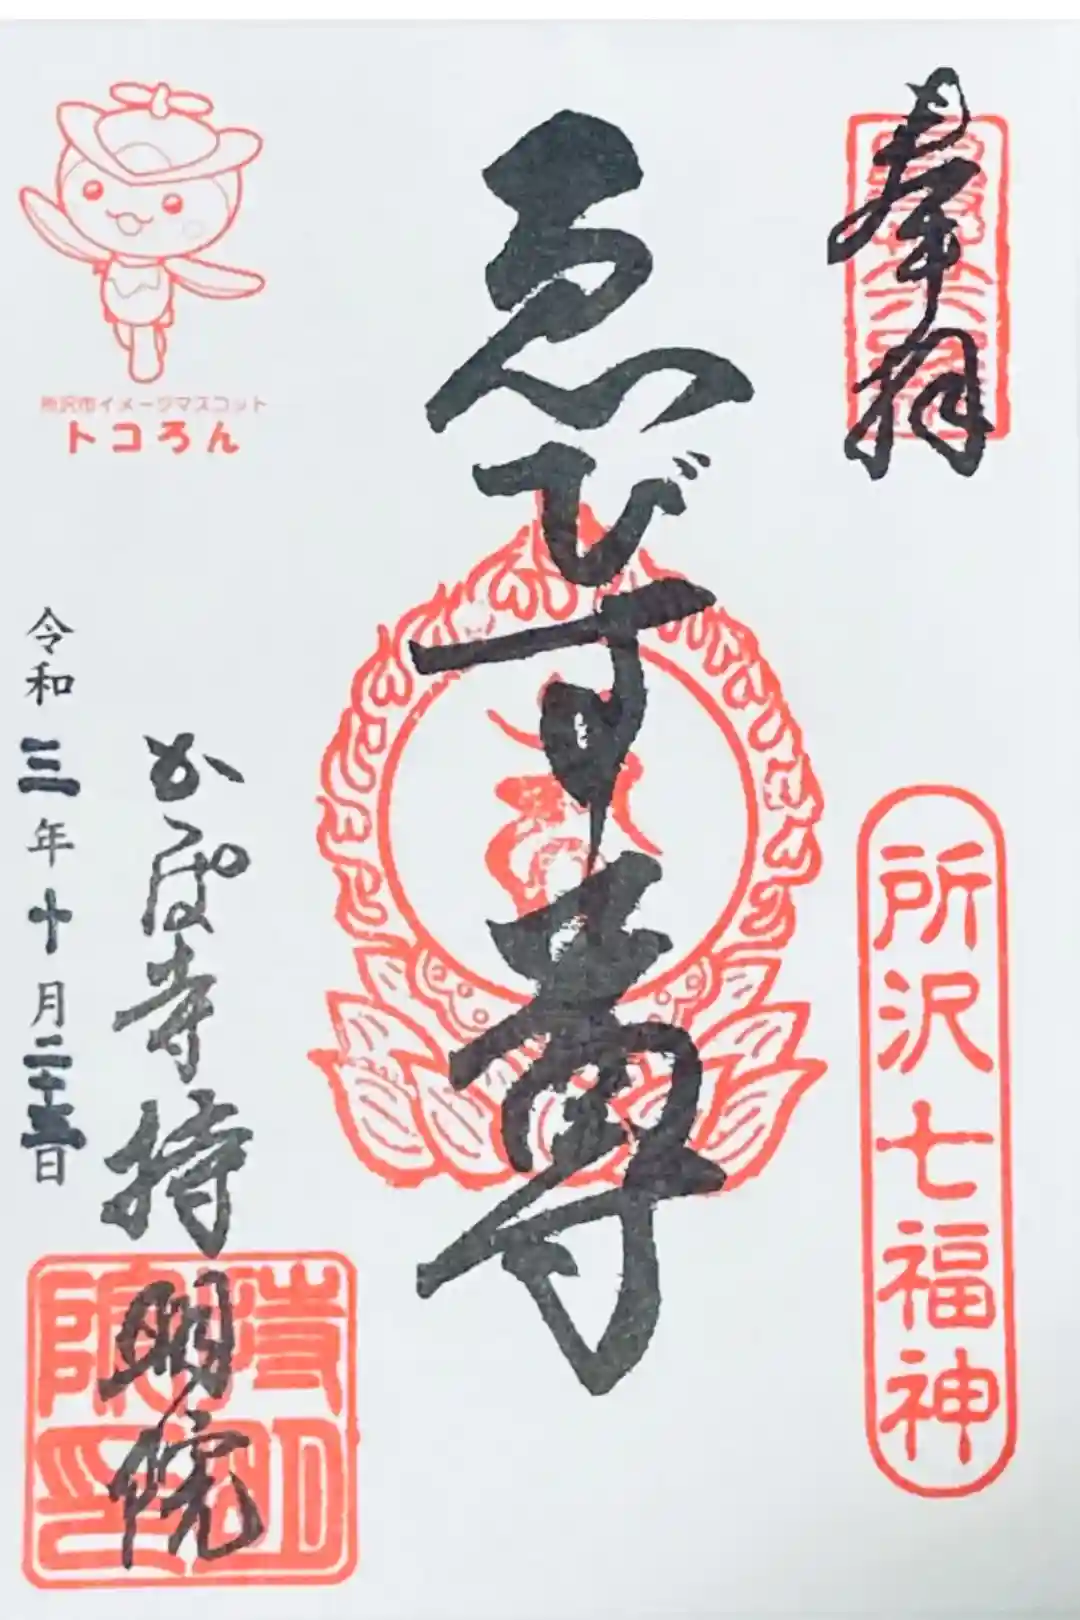 奉拝
所沢七福神
ゑびす尊
かっぱ寺持明院
持明院印
令和三年十月二十三日
所沢市イメージマスコット
トコろん